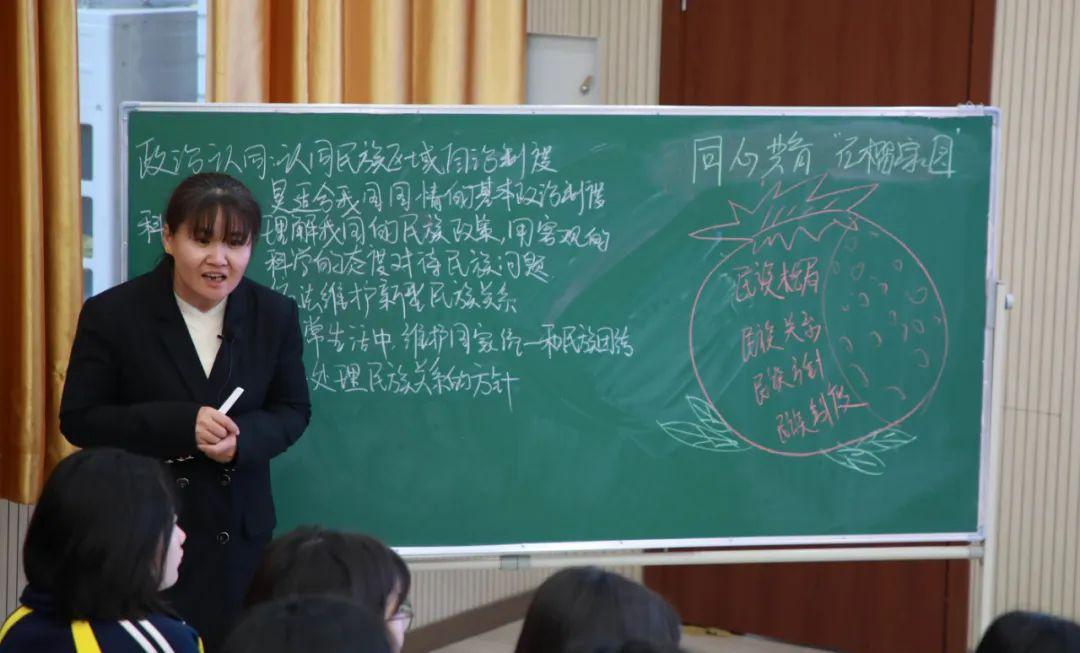 政治认同:认同民族区域自治制度
是适合我国国情的基本政治制度
科 理解我国的民族政策,用客观的
科学的态度对待民族问题
法维护新型民族关系
常生活中,维护国家统一和民族团结
处理民族关系的方针
同心共育"石榴家园"
民族
民族关系
民族方针
民族制度